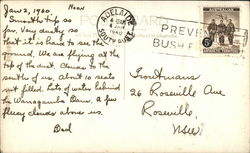 Jan 2, 1960. Noon
Smooth trip so
far. Very dusty so
that it is hard to see the
ground. We are flying at the
top of the dust. Clouds to the
south of us. About 10 seats
not filled. Lots of water behind
the Warragamba Dam. A few
fleecy clouds above us.
Dad
POST CARD
ADELAIDE
1960
SOUTH AUST
PREVENT
BUSH F
5D
Troutmans
26 Roseville Ave
Roseville,
NSW